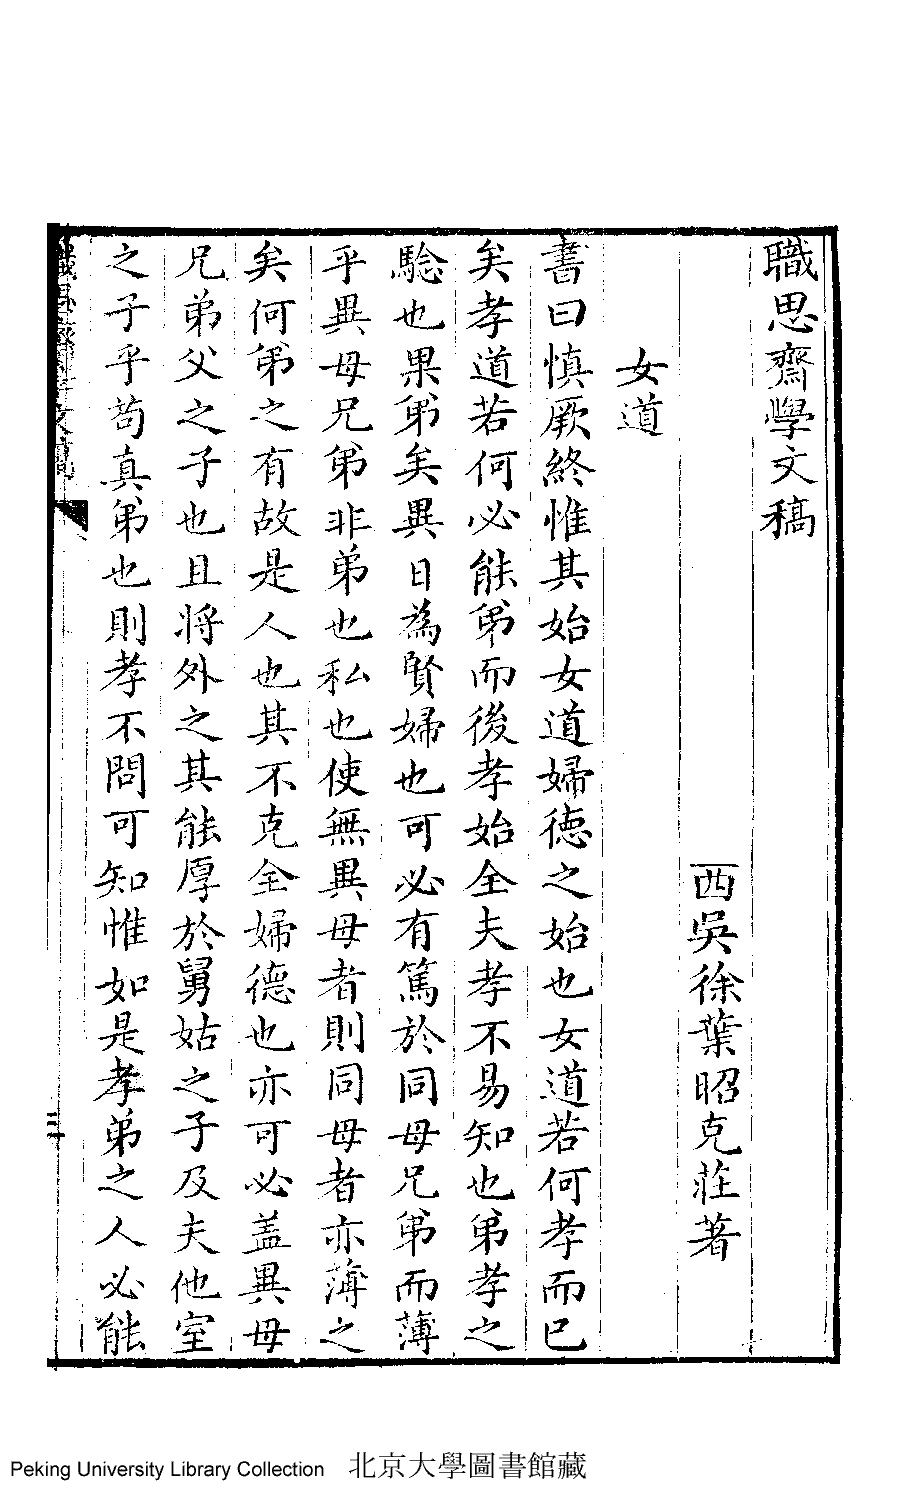 職思齋學文稿
西吳徐葉昭克莊著
女道
書曰慎厥終惟其始女道婦德之始也女道若何孝而已
矣孝道若何必能弟而後孝始全夫孝不易知也弟孝之
驗也果弟矣異日為賢婦也可必有篤於同母兄弟而薄
乎異母兄弟非弟也私也使無異母者則同母者亦薄之
矣何弟之有故是人也其不克全婦德也亦可必蓋異母
兄弟父之子也且將外之其能厚於舅姑之子及夫他室
之子乎苟真弟也則孝不問可知惟如是孝弟之人必能
Peking University Library Collection 北京大學圖書館藏